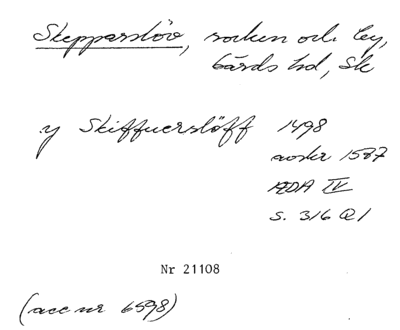 Skepparslöv, socken och by,
Gärds hd, Sk
y Skiffuerslöff 1498
avskr 1587
ÆDA IV
s. 316 Q1
Nr 21108
(acc nr 6598)